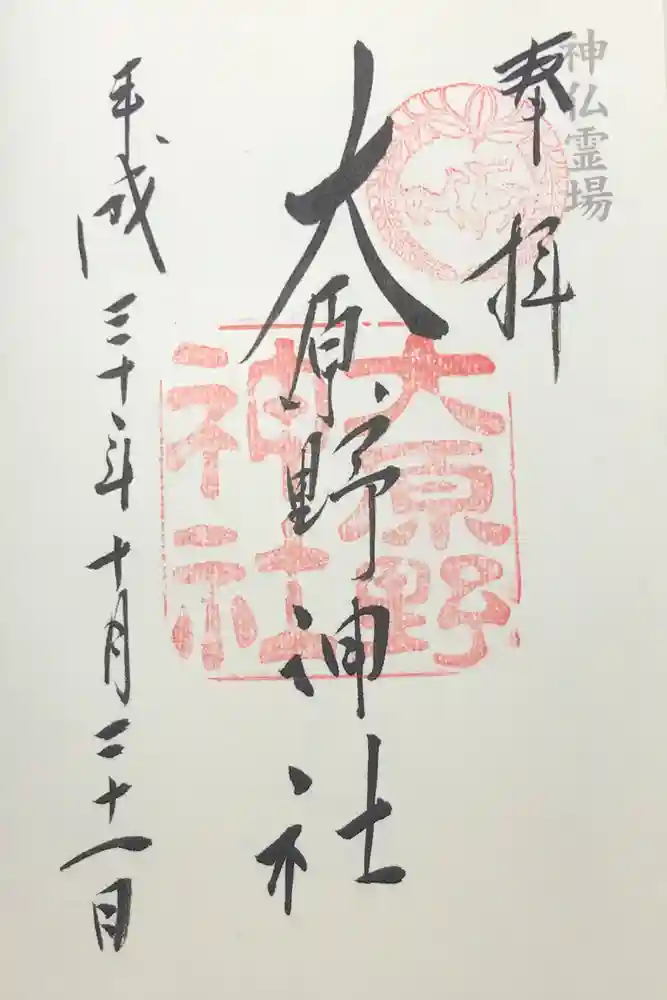 神仏霊場
奉拝
大原野神社
大原野
神社
平成三十年十月二十一日